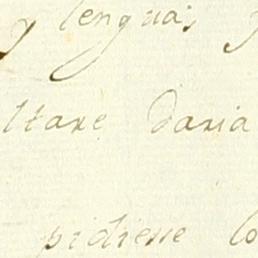 y lengua;
ltare daria
pidiese lo